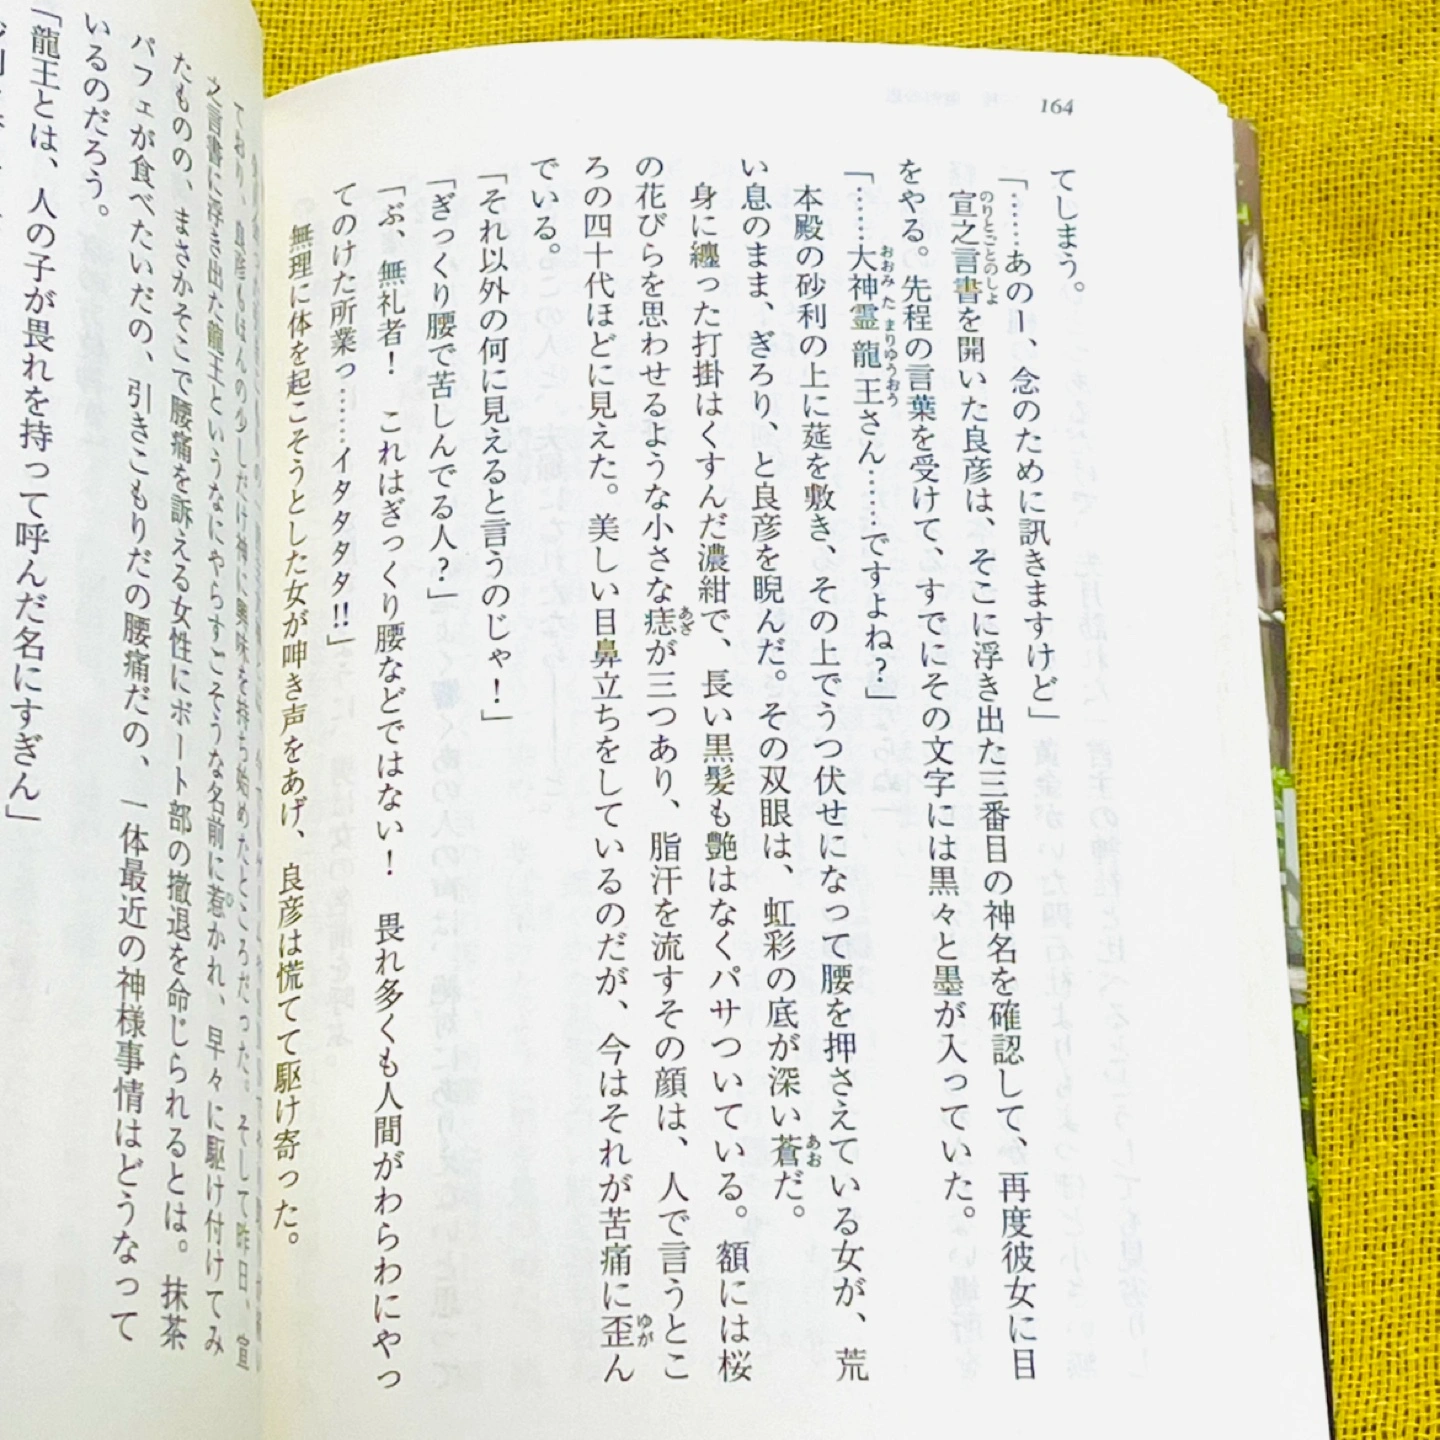 164
てしまう。
「……あのー、念のために訊きますけど」
宣之言書を開いた良彦は、そこに浮き出た三番目の神名を確認して、再度彼女に目
のりとごとのしょ
をやる。先程の言葉を受けて、すでにその文字には黒々と墨が入っていた。
「……大神霊龍王さん……ですよね？」
おおみたまりゅうおう
本殿の砂利の上に莚を敷き、その上でうつ伏せになって腰を押さえている女が、荒
い息のまま、ぎろり、と良彦を睨んだ。その双眼は、虹彩の底が深い蒼だ。
あお
身に纏った打掛はくすんだ濃紺で、長い黒髪も艶はなくパサついている。額には桜
の花びらを思わせるような小さな痣が三つあり、脂汗を流すその顔は、人で言うとこ
あざ
ろの四十代ほどに見えた。美しい目鼻立ちをしているのだが、今はそれが苦痛に歪ん
ゆが
でいる。
「それ以外の何に見えると言うのじゃ！」
「ぎっくり腰で苦しんでる人？」
「ぶ、無礼者！　これはぎっくり腰などではない！　畏れ多くも人間がわらわにやっ
てのけた所業っ……イタタタタ!!」
無理に体を起こそうとした女が呻き声をあげ、良彦は慌てて駆け寄った。
ており、良彦もほんの少しだけ神に興味を持ち始めたところだった。そして昨日、宣
之言書に浮き出た龍王というなにやらすごそうな名前に惹かれ、早々に駆け付けてみ
たものの、まさかそこで腰痛を訴える女性にボート部の撤退を命じられるとは。抹茶
パフェが食べたいだの、引きこもりだの腰痛だの、一体最近の神様事情はどうなって
いるのだろう。
「龍王とは、人の子が畏れを持って呼んだ名にすぎん」